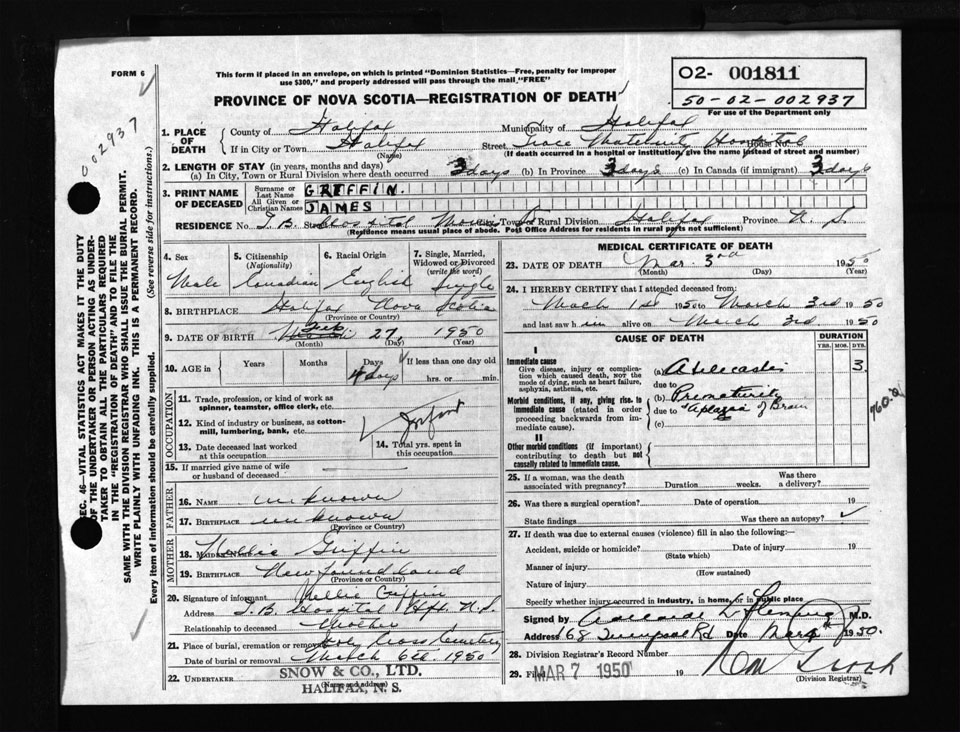 FORM 6
This form if placed in an envelope, on which is printed "Dominion Statistics—Free, penalty for improper
use $300," and properly addressed will pass through the mail "FREE"
PROVINCE OF NOVA SCOTIA—REGISTRATION OF DEATH
O2- 001811
50-02-002937
For use of the Department only
002937
SEC. 46—VITAL STATISTICS ACT MAKES IT THE DUTY
OF THE UNDERTAKER OR PERSON ACTING AS UNDER-
TAKER TO OBTAIN ALL THE PARTICULARS REQUIRED
IN THE "REGISTRATION OF DEATH" AND TO FILE THE
SAME WITH THE DIVISION REGISTRAR WHO SHALL ISSUE THE BURIAL PERMIT.
WRITE PLAINLY WITH UNFADING INK. THIS IS A PERMANENT RECORD.
Every item of information should be carefully supplied. (See reverse side for instructions.)
1. PLACE OF DEATH County of Halifax Municipality of Halifax
If in City or Town Halifax (Name) Street Grace Maternity Hospital House No.
(If death occurred in a hospital or institution, give the name instead of street and number)
2. LENGTH OF STAY (in years, months and days)
(a) In City, Town or Rural Division where death occurred 3 days (b) In Province 3 days (c) In Canada (if immigrant) 3 days
3. PRINT NAME OF DECEASED Surname or Last Name GRIFFIN.
All Given or Christian Names JAMES
RESIDENCE No. T.B. Street Hospital City, Town or Rural Division Halifax Province N.S.
(Residence means usual place of abode. Post Office Address for residents in rural parts not sufficient)
4. Sex Male
5. Citizenship (Nationality) Canadian
6. Racial Origin English
7. Single, Married, Widowed or Divorced (write the word) Single
8. BIRTHPLACE Halifax Nova Scotia
(Province or Country)
9. DATE OF BIRTH Feb 27 1950
(Month) (Day) (Year)
10. AGE in Years Months Days 4 days If less than one day old
hrs. or min.
OCCUPATION
11. Trade, profession, or kind of work as
spinner, teamster, office clerk, etc. Infant
12. Kind of industry or business, as cotton-
mill, lumbering, bank, etc.
13. Date deceased last worked
at this occupation
14. Total yrs. spent in
this occupation
15. If married give name of wife
or husband of deceased
FATHER
16. NAME unknown
17. BIRTHPLACE unknown
(Province or Country)
MOTHER
18. MAIDEN NAME Nellie Griffin
19. BIRTHPLACE Newfoundland
(Province or Country)
20. Signature of informant Nellie Griffin
Address T.B. Hospital Hfx. N.S.
Relationship to deceased Mother
21. Place of burial, cremation or removal Holy Cross Cemetery
Date of burial or removal March 6th 1950
22. UNDERTAKER SNOW & CO., LTD.
(Name and Address)
HALIFAX, N. S.
MEDICAL CERTIFICATE OF DEATH
23. DATE OF DEATH Mar. 3rd 1950
(Month) (Day) (Year)
24. I HEREBY CERTIFY that I attended deceased from:
March 1st 1950 to March 3rd 1950
and last saw him alive on March 3rd 1950
CAUSE OF DEATH
DURATION
YRS. MOS. DYS.
I
Immediate cause
Give disease, injury or complica-
tion which caused death, NOT the
mode of dying, such as heart failure,
asphyxia, asthenia, etc.
(a) Atelectasis 3
due to
Morbid conditions, if any, giving rise to
immediate cause (stated in order
proceeding backwards from im-
mediate cause).
(b) Prematurity
due to Aplazia of Brain
(c)
II
Other morbid conditions (if important)
contributing to death but not
causally related to immediate cause.
25. If a woman, was the death
associated with pregnancy? Duration weeks. Was there
a delivery?
26. Was there a surgical operation? Date of operation 19
State findings Was there an autopsy? ✓
27. If death was due to external causes (violence) fill in also the following:
Accident, suicide or homicide? Date of injury 19
(State which)
Manner of injury
(How sustained)
Nature of injury
Specify whether injury occurred in industry, in home, or in public place
Signed by Fleming M.D.
Address 168 Date Mar 1950.
28. Division Registrar's Record Number
29. Filed MAR 7 1950 19
(Division Registrar)